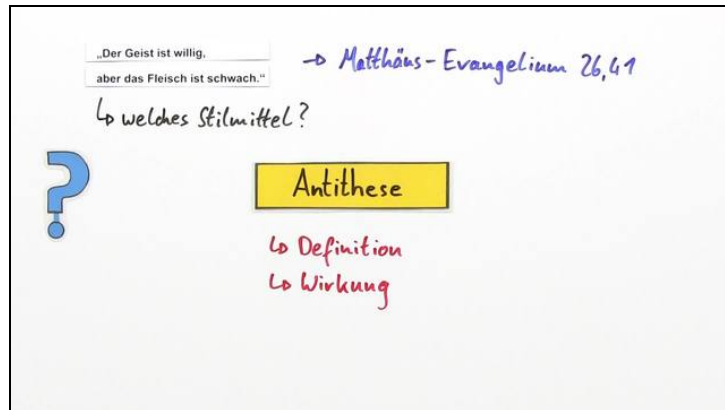 „Der Geist ist willig,
aber das Fleisch ist schwach.“
→ Matthäus-Evangelium 26,41
↳ welches Stilmittel?
?
Antithese
↳ Definition
↳ Wirkung